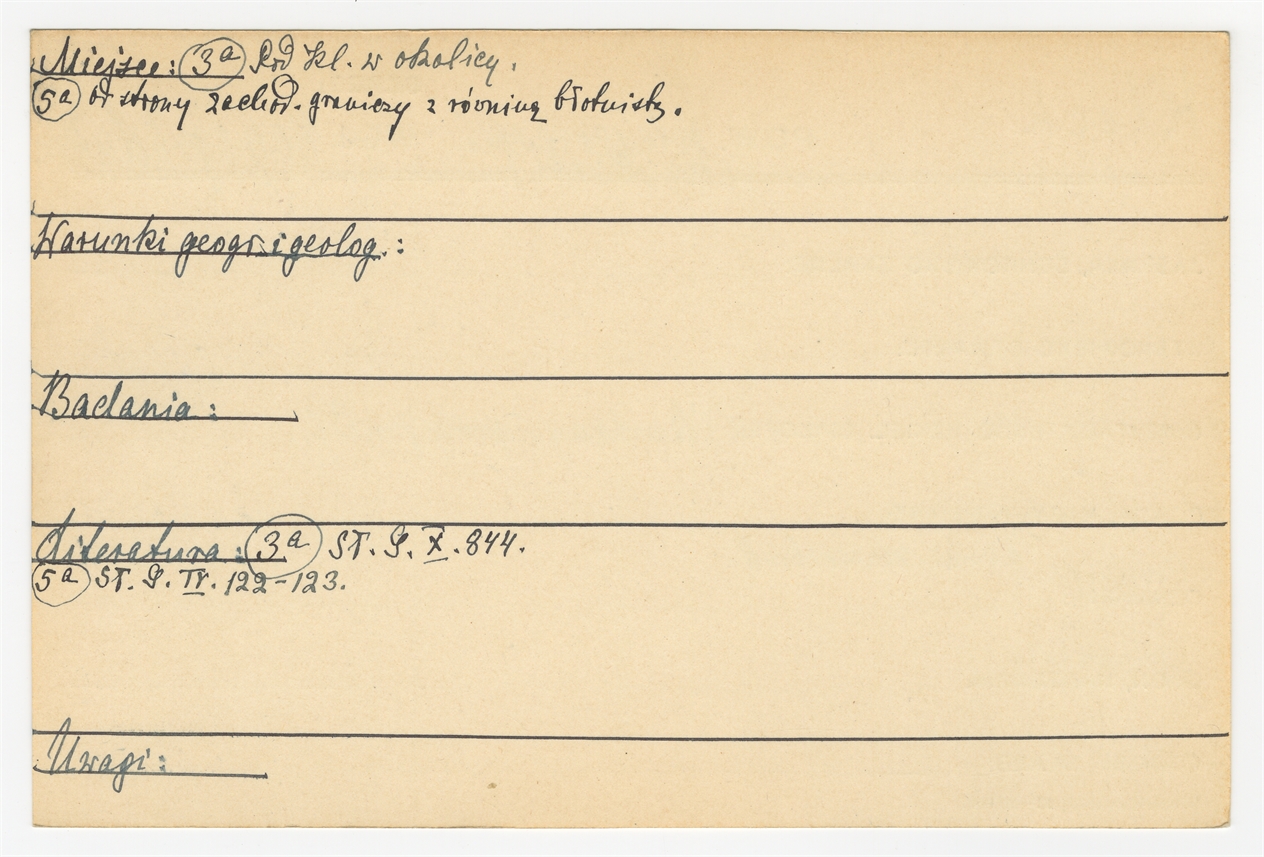 Miejsce: 3a Pod Kl. w okolicy.
5a od strony zachod. graniczy z równiną błotnistą.
Warunki geogr. i geolog.:
Badania:
Literatura: 3a St. G. X. 844.
5a St. G. IV. 122-123.
Uwagi: